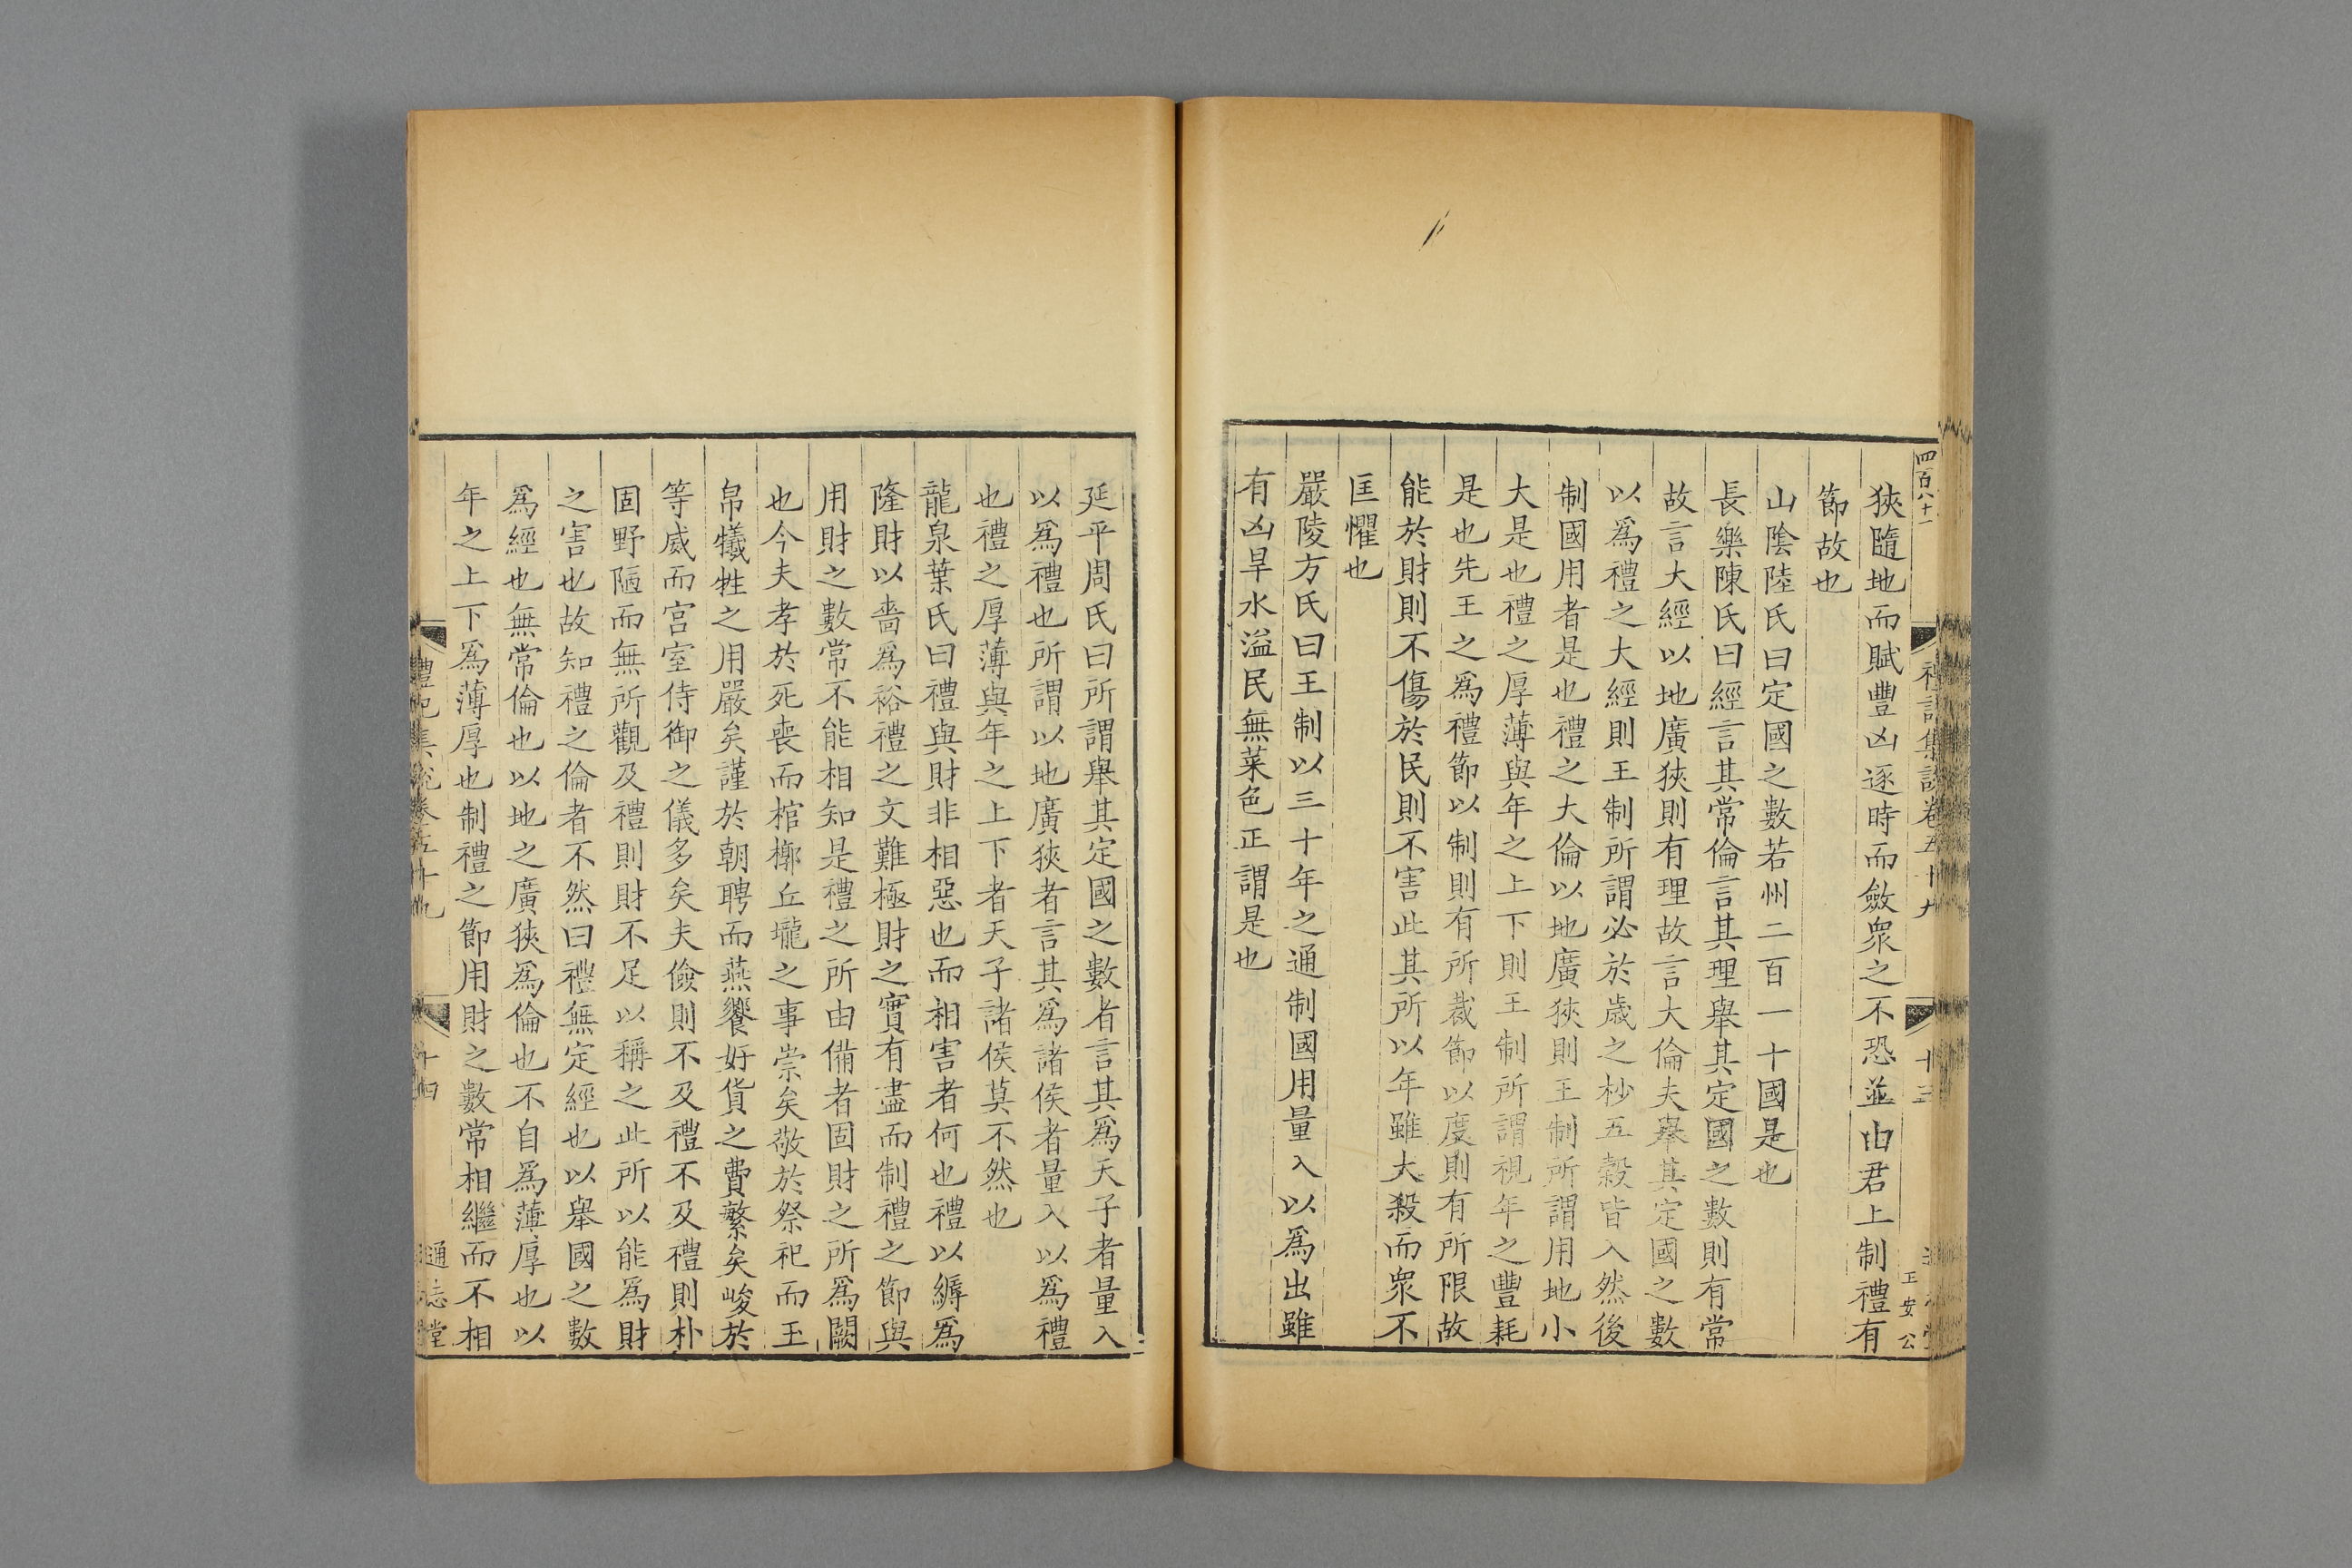 四百八十一
禮記集說卷五十九
十三
正安公
狹隨地而賦豐凶逐時而斂衆之不恐並由君上制禮有
節故也
山陰陸氏曰定國之數若州二百一十國是也
長樂陳氏曰經言其常倫言其理舉其定國之數則有常
故言大經以地廣狹則有理故言大倫夫舉其定國之數
以爲禮之大經則王制所謂必於歲之杪五穀皆入然後
制國用者是也禮之大倫以地廣狹則王制所謂用地小
大是也禮之厚薄與年之上下則王制所謂視年之豐耗
是也先王之爲禮節以制則有所裁節以度則有所限故
能於財則不傷於民則不害此其所以年雖大殺而衆不
匡懼也
嚴陵方氏曰王制以三十年之通制國用量入以爲出雖
有凶旱水溢民無菜色正謂是也
延平周氏曰所謂舉其定國之數者言其爲天子者量入
以爲禮也所謂以地廣狹者言其爲諸侯者量入以爲禮
也禮之厚薄與年之上下者天子諸侯莫不然也
龍泉葉氏曰禮與財非相惡也而相害者何也禮以縟爲
隆財以嗇爲裕禮之文難極財之實有盡而制禮之節與
用財之數常不能相知是禮之所由備者固財之所爲闕
也今夫孝於死喪而棺槨丘壠之事崇矣敬於祭祀而玉
帛犧牲之用嚴矣謹於朝聘而燕饗好貨之費繁矣峻於
等威而宫室侍御之儀多矣夫儉則不及禮不及禮則朴
固野陋而無所觀及禮則財不足以稱之此所以能爲財
之害也故知禮之倫者不然曰禮無定經也以舉國之數
爲經也無常倫也以地之廣狹爲倫也不自爲薄厚也以
年之上下爲薄厚也制禮之節用財之數常相繼而不相
禮記集說卷五十九
十四
通志堂